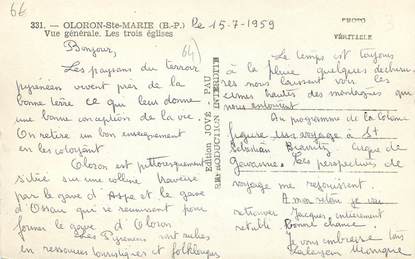 66
331. — OLORON-Ste-MARIE (B.-P.)
Vue générale. Les trois églises
Le 15-7-1959
PHOTO
VÉRITABLE
(64)
Bonjour,
Les paysans du terroir
pyrénéen vivent près de la
bonne terre ce qui leur donne
une bonne conception de la vie.
On retire un bon enseignement
en les cotoyant
Oloron est pittoresquement
située sur une colline traversée
par le gave d'Aspe et le gave
d'Ossau qui se réunissent pour
former le gave d'Oloron
Les Pyrénées sont riches
en ressources touristiques et folkloriques
Edition JOVÉ - PAU
REPRODUCTION INTERDITE
Le temps est toujours
à la pluie quelques
nous laissent voir les
cimes hautes des montagnes qui
nous entourent
Au programme de la Colonie
figure un voyage à St
Sébastien Biarritz Cirque de
Gavarnie. Les perspectives de
voyage me réjouissent.
A mon retour je vais
retrouver Jacques entièrement
rétabli. Bonne chance.
Je vous embrasse tous
Monique